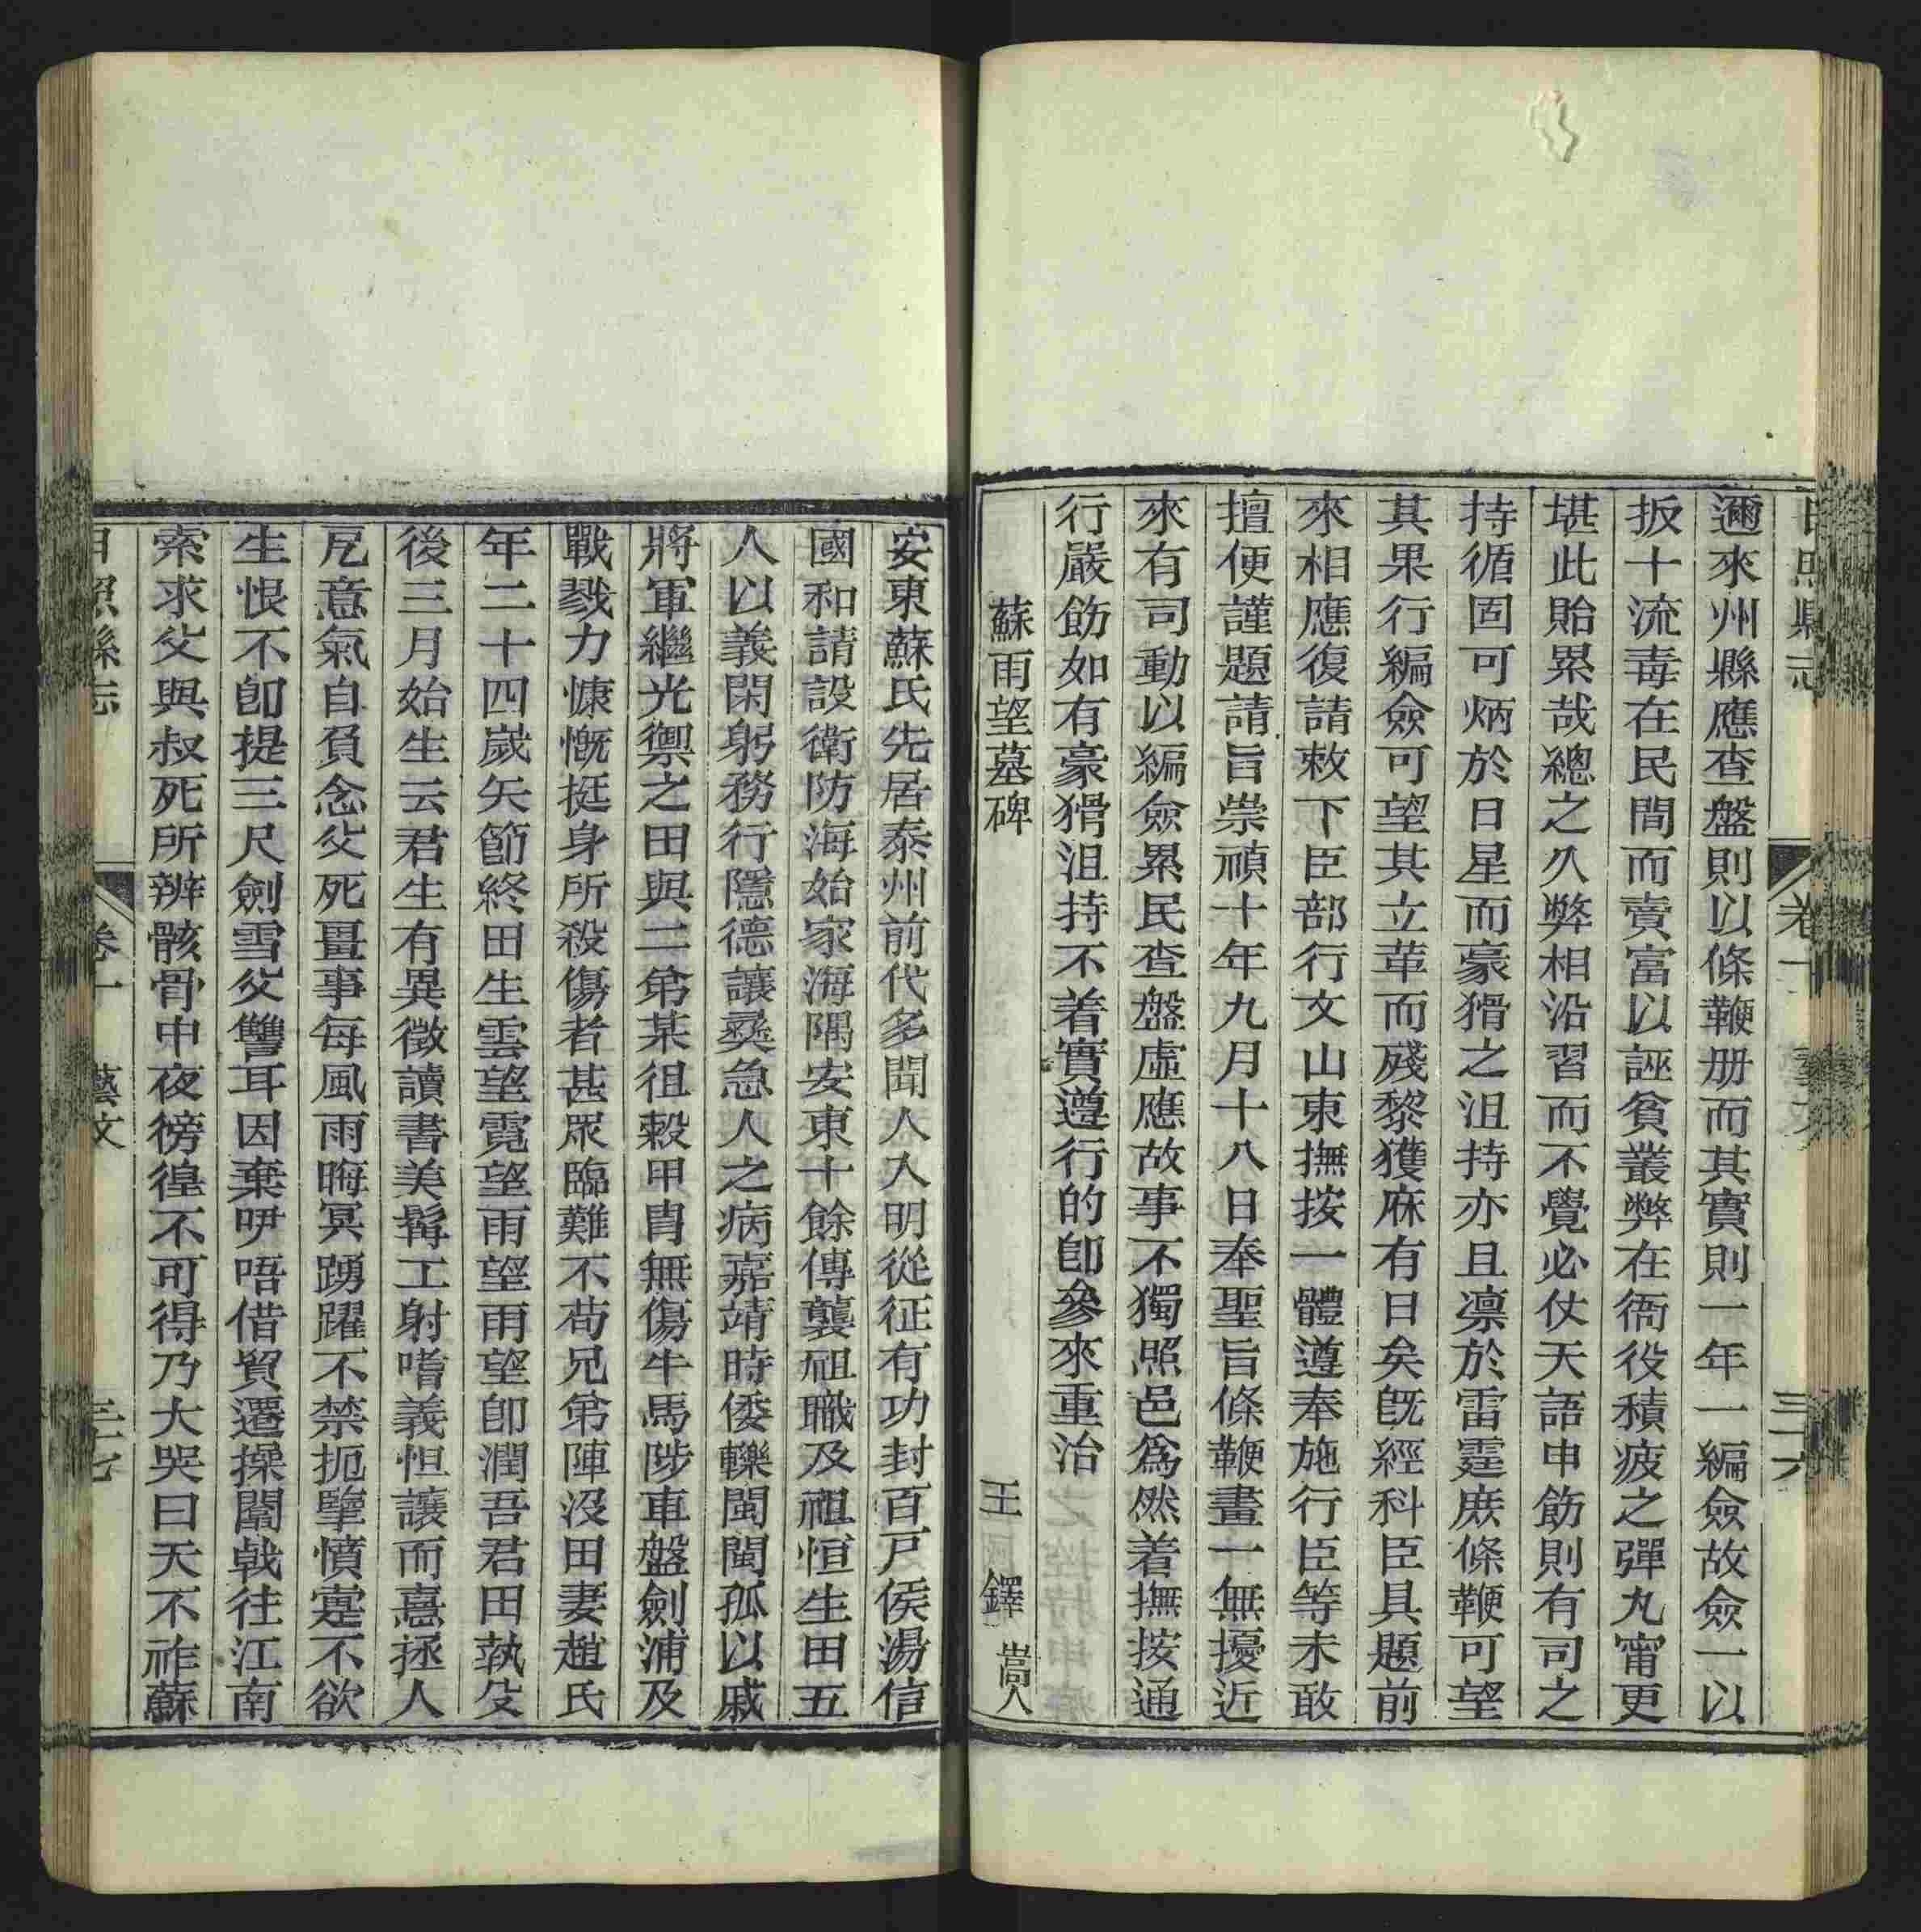 日照縣志 卷十 藝文 三十六
邇來州縣應查盤則以條鞭册而其實則一年一編僉故僉一以
扳十流毒在民間而賣富以誣貧叢弊在衙役積疲之彈丸甯更
堪此貽累哉總之久弊相沿習而不覺必仗天語申飭則有司之
持循固可炳於日星而豪猾之沮持亦且凛於雷霆庶條鞭可望
其果行編僉可望其立革而殘黎獲庥有日矣旣經科臣具題前
來相應復請敕下臣部行文山東撫按一體遵奉施行臣等未敢
擅便謹題請旨崇禎十年九月十八日奉聖旨條鞭畫一無擾近
來有司動以編僉累民查盤虛應故事不獨照邑爲然着撫按通
行嚴飭如有豪猾沮持不着實遵行的卽參來重治
蘇雨望墓碑 王鐸 嵩人
安東蘇氏先居泰州前代多聞人入明從征有功封百戸侯湯信
國和請設衛防海始家海隅安東十餘傳襲祖職及祖恒生田五
人以義閑躬務行隱德讓爨急人之病嘉靖時倭轢閩閩孤以戚
將軍繼光禦之田與二弟某徂縠甲胄無傷牛馬陟車盤劍浦及
戰戮力慷慨挺身所殺傷者甚眾臨難不苟兄弟陣沒田妻趙氏
年二十四歲矢節終田生雲望霓望雨望雨望卽潤吾君田執殳
後三月始生云君生有異徵讀書美髯工射嗜義怛讓而憙拯人
戹意氣自負念父死畺事每風雨晦冥踴躍不禁扼擥憤寔不欲
生恨不卽提三尺劍雪父讐耳因棄吚唔借貿遷操闟戟往江南
索求父與叔死所辨骸骨中夜徬徨不可得乃大哭曰天不祚蘇
日照縣志 卷十 藝文 三十七